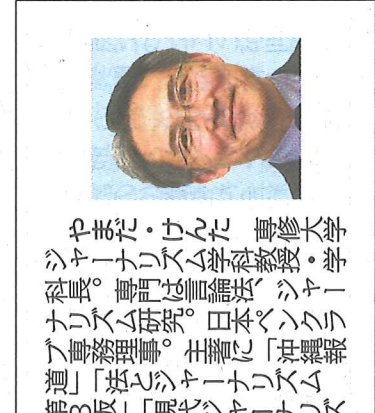 やまだ・けんた 専修大学
ジャーナリズム学科教授・学
科長。専門は言論法、ジャー
ナリズム研究。日本ペンクラ
ブ専務理事。主著に「沖縄報
道」「法とジャーナリズム
第3版」「現代ジャーナリズ